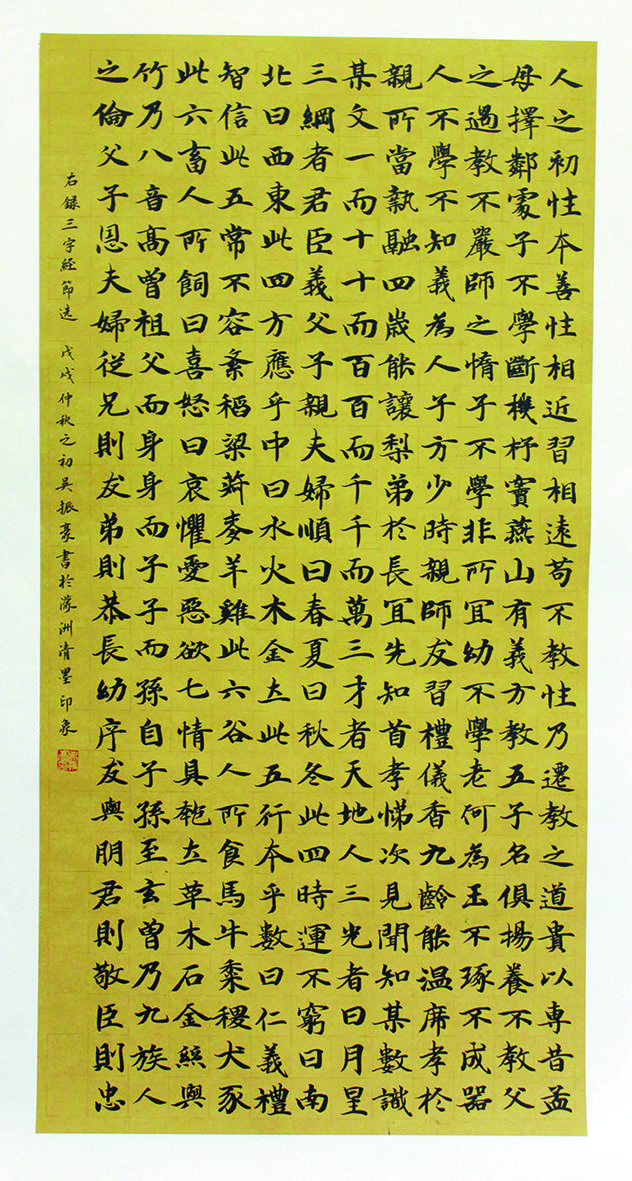 人之初性本善性相近習相遠苟不教性乃遷教之道貴以專昔孟
母擇鄰處子不學斷機杼竇燕山有義方教五子名俱揚養不教父
之過教不嚴師之惰子不學非所宜幼不學老何為玉不琢不成器
人不學不知義為人子方少時親師友習禮儀香九齡能温席孝於
親所當執融四歲能讓梨弟於長宜先知首孝悌次見聞知某數識
某文一而十十而百百而千千而萬三才者天地人三光者日月星
三綱者君臣義父子親夫婦順曰春夏曰秋冬此四時運不窮曰南
北曰西東此四方應乎中曰水火木金土此五行本乎數曰仁義禮
智信此五常不容紊稻梁菽麥羊雞此六谷人所食馬牛黍稷犬豕
此六畜人所飼曰喜怒曰哀懼愛惡欲七情具匏土革木石金絲與
竹乃八音高曾祖父而身身而子子而孫自子孫至玄曾乃九族人
之倫父子恩夫婦從兄則友弟則恭長幼序友與朋君則敬臣則忠
右錄三字經節选 戊戌仲秋之初吴振豪書於濛洲清墨印象